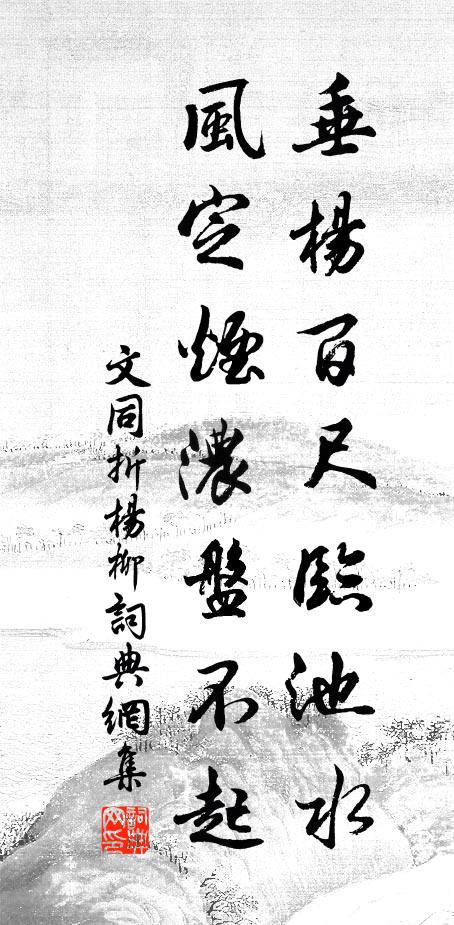 垂楊百尺臨池水
風定煙濃盤不起
文同折楊柳詞典網集